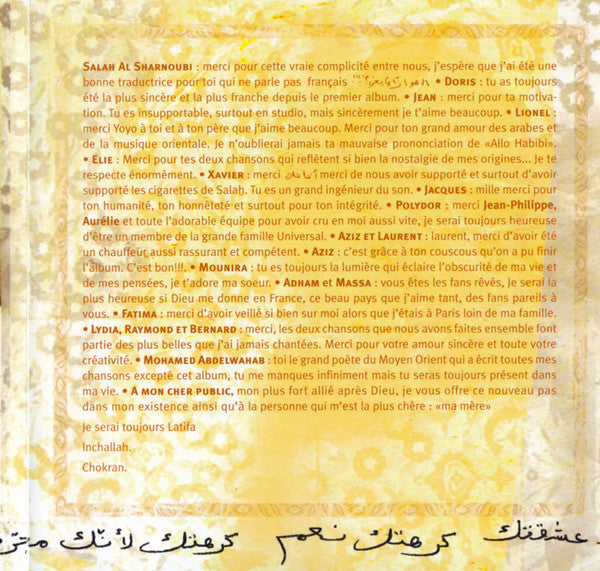 SALAH AL SHARNOUBI : merci pour cette vraie complicité entre nous, j'espère que j'ai été une
bonne traductrice pour toi qui ne parle pas français • DORIS : tu as toujours
été la plus sincère et la plus franche depuis le premier album. • JEAN : merci pour ta motiva-
tion. Tu es insupportable, surtout en studio, mais sincèrement je t'aime beaucoup. • LIONEL :
merci Yoyo à toi et à ton père que j'aime beaucoup. Merci pour ton grand amour des arabes et
de la musique orientale. Je n'oublierai jamais ta mauvaise prononciation de «Allo Habibi».
• ELIE : Merci pour tes deux chansons qui reflètent si bien la nostalgie de mes origines... Je te
respecte énormément. • XAVIER : merci merci de nous avoir supporté et surtout d'avoir
supporté les cigarettes de Salah. Tu es un grand ingénieur du son. • JACQUES : mille merci pour
ton humanité, ton honnêteté et surtout pour ton intégrité. • POLYDOR : merci Jean-Philippe,
Aurélie et toute l'adorable équipe pour avoir cru en moi aussi vite, je serai toujours heureuse
d'être un membre de la grande famille Universal. • AZIZ ET LAURENT : laurent, merci d'avoir été
un chauffeur aussi rassurant et compétent. • AZIZ : c'est grâce à ton couscous qu'on a pu finir
l'album. C'est bon!!!. • MOUNIRA : tu es toujours la lumière qui éclaire l'obscurité de ma vie et
de mes pensées, je t'adore ma soeur. • ADHAM et MASSA : vous êtes les fans rêvés, Je serai la
plus heureuse si Dieu me donne en France, ce beau pays que j'aime tant, des fans pareils à
vous. • FATIMA : merci d'avoir veillé si bien sur moi alors que j'étais à Paris loin de ma famille.
• LYDIA, RAYMOND ET BERNARD : merci, les deux chansons que nous avons faites ensemble font
partie des plus belles que j'ai jamais chantées. Merci pour votre amour sincère et toute votre
créativité. • MOHAMED ABDELWAHAB : toi le grand poète du Moyen Orient qui a écrit toutes mes
chansons excepté cet album, tu me manques infiniment mais tu seras toujours présent dans
ma vie. • A MON CHER PUBLIC, mon plus fort allié après Dieu, je vous offre ce nouveau pas
dans mon existence ainsi qu'à la personne qui m'est la plus chère : «ma mère»
Je serai toujours Latifa
Inchallah.
Chokran.
عشقتك كرهتك نعم كرهتك لأنّك